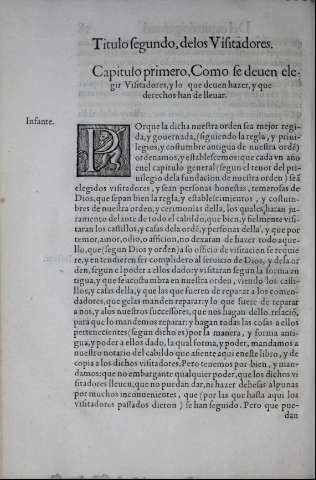 Titulo segundo, delos Visitadores.
Capitulo primero, Como se deuen ele-
gir Visitadores, y lo que deuen hazer, y que
derechos han de lleuar.
Infante.
POrque la dicha nuestra orden sea mejor regi-
da, y gouernada, (siguiendo la regla, y priui-
legios, y costumbre antigua de nuestra ordē)
ordenamos, y establescemos: que cada vn año
en el capitulo general (segun el tenor del pri
uilegio dela fundacion de nuestra orden) seā
elegidos visitadores, y sean personas honestas, temerosas de
Dios, que sepan bien la regla, y establescimientos, y costum-
bres de nuestra orden, y cerimonias della, los quales hagan ju-
ramento delante de todo el cabildo, que bien, y fielmente visi-
taran los castillos, y casas dela ordē, y personas della, y que por
temor, amor, odio, o afficion, no dexaran de hazer todo aque-
llo, que (segun Dios y orden) a su officio de visitacion se requie
re, y entendieren ser complidero al seruicio de Dios, y dela or
den, segun el poder a ellos dado: y visitaran segun la forma an
tigua, y que se acostumbra en nuestra orden, viendo los casti-
llos, y casas della, y que las que fueren de reparar a los comen-
dadores, que gelas manden reparar: y lo que fuere de reparar
a nos, y alos nuestros successores, que nos hagan dello relaciō,
para que lo mandemos reparar: y hagan todas las cosas a ellos
pertenescientes (segun dicho es) por la manera, y forma anti-
gua, y poder a ellos dado, la qual forma, y poder, mandamos a
nuestro notario del cabildo que asiente aqui en este libro, y de
copia a los dichos visitadores. Pero tenemos por bien, y man-
damos: que no embargante qualquier poder, que los dichos vi
sitadores lleuen, que no puedan dar, ni hazer dehesas algunas
por muchos inconuenientes, que (por las que hasta aqui los
visitadores passados dieron) se han seguido. Pero que pue-
dan